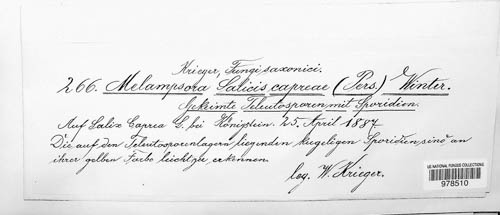 Krieger, Fungi saxonici.
266. Melampsora Salicis capreae (Pers.) Winter.
Gekeimte Teleutosporen mit Sporidien.
Auf Salix Caprea L. bei Königstein. 25. April 1887
Die auf den Teleutosporenlagern liegenden kugeligen Sporidien sind an
ihrer gelben Farbe leicht zu erkennen.
leg. W. Krieger.
US NATIONAL FUNGUS COLLECTIONS
978510